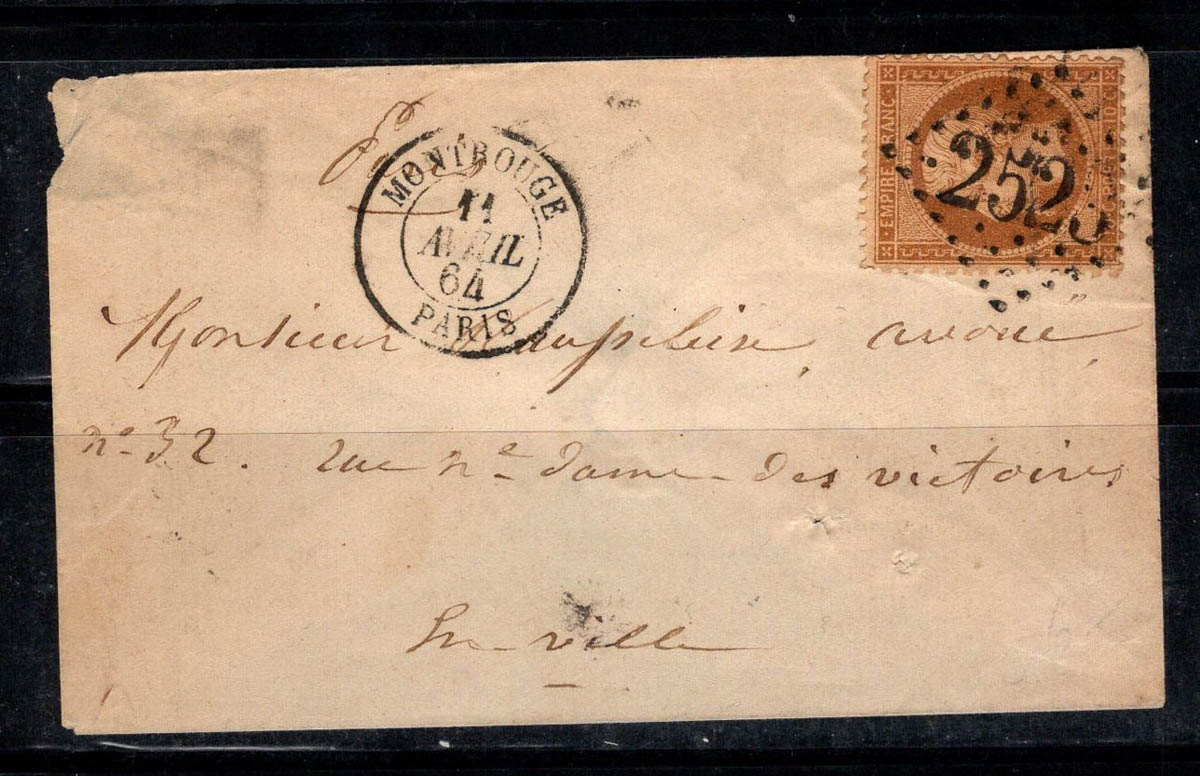 MONTROUGE
11
AVRIL
64
PARIS
EMPIRE FRANC
10 C
2523
Monsieur avoué,
n° 32. rue n^e dame des victoires
En ville